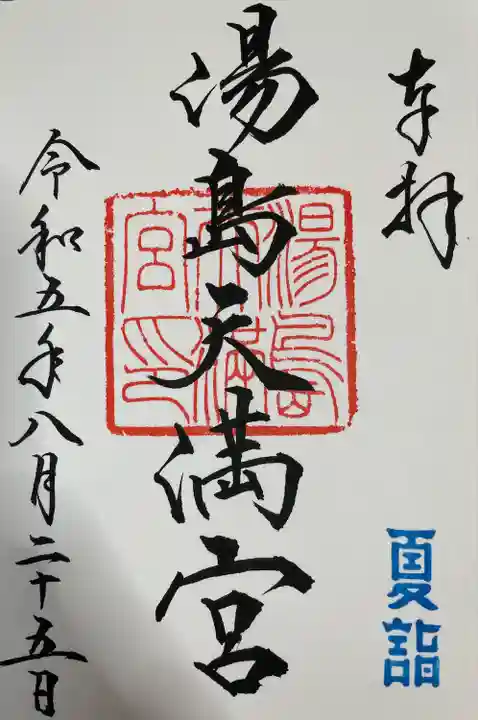 奉拝
夏詣
湯島天満宮
湯島天満宮印
令和五年八月二十五日